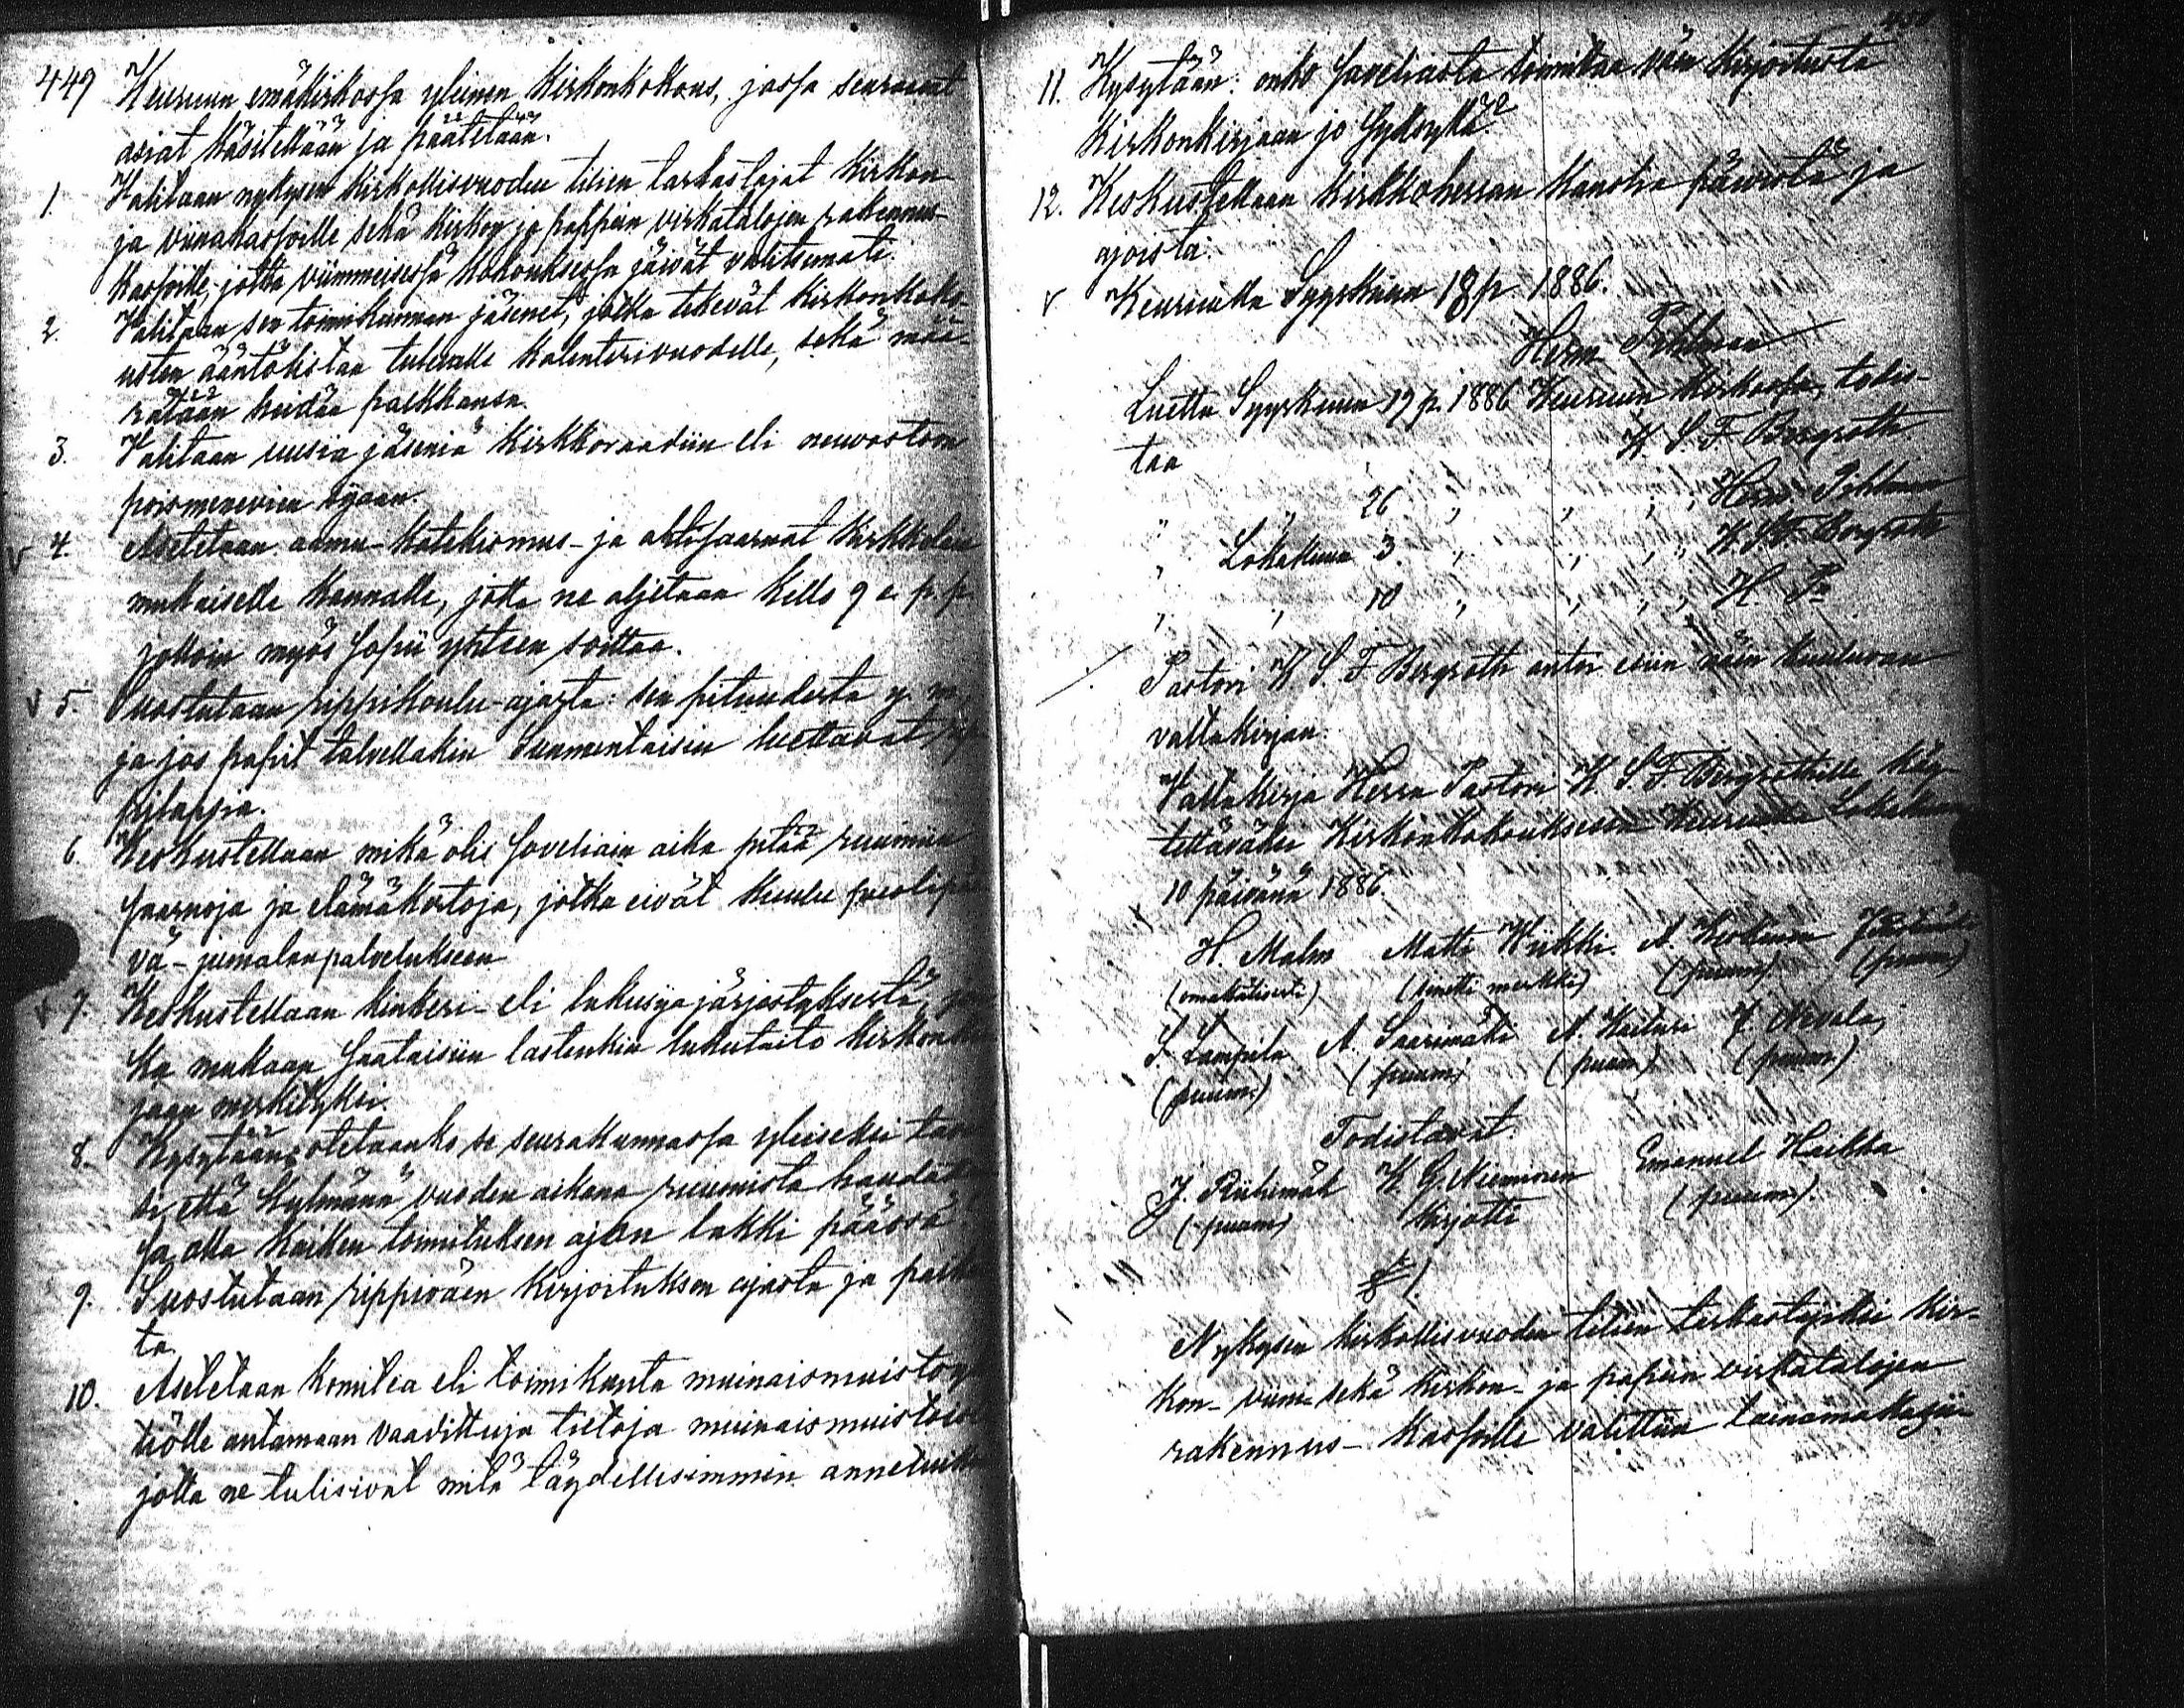 449 Keuruun emäkirkossa yleinen Kirkonkokous, jossa seuraavat
asiat käsitellään ja päätetään.
1. Valitaan nykysen kirkollisvuoden tilien tarkastajat kirkon
ja viinakassoille sekä kirkon ja pappien virkatalojen rakennus-
kassoille, jotka viimmeisessä kokouksessa jäivät valitsemata.
2. Valitaan sen toimikunnan jäsenet, jotka tekevät kirkonkoko-
usten ääntölistaa tulevalle kalenterivuodelle, sekä mää-
rätään heidän palkkansa.
3. Valitaan uusia jäseniä kirkkoraadiin eli neuvostoon
poismenevien sijaan.
v 4. Asetetaan aamu- katekismus- ja ahtosaarnat kirkkolain
mukaiselle kannalle, jotta ne aljetaan kello 9 e. p. p.
jolloin myös sopii yhteen soittaa.
v 5. Suostutaan rippikoulu-ajasta: sen pituudesta y. m.
ja jos papit talvellakin Suomentaisin luettavat rip-
pilapsia.
6. Keskustellaan mikä olis soveliain aika pitää ruumiin
saarnoja ja elämäkertoja, jotka eivät kuulu puolipäi
vä- jumalanpalvelukseen
v 7. Keskustellaan kinkeri- eli lukusija järjestyksestä, jon
ka mukaan saataisiin lastenkin lukutaito kirkonkir
jaan merkityksi.
8. Kysytään: otetaanko se seurakunnassa yleiseksi tavak
si, että kylmänä vuoden aikana ruumista haudates
sa olla kaiken toimituksen ajan lakki päässä
9. Suostutaan rippiväen kirjoituksen ajasta ja paikas
ta.
10. Asetetaan komitea eli toimikunta muinaismuistoyh
tiölle antamaan vaadittuja tietoja muinaismuistoista
jotta ne tulisivat mitä täydellisimmin annetuiksi
11. Kysytään: onko soveliasta toimittaa väen kirjoitusta
kirkonkirjaan jo Syksyllä?
12. Keskustellaan kirkkoherran kanslia päivistä ja
ajoista.
v Keuruulla Syyskuun 18 p. 1886.
Herm Pihlman
Luettu Syyskuun 19 p. 1886 Keuruun kirkossa, todis-
taa K. S. F. Bergroth
" " 26 " " " Herm Pihlman
" Lokakuun 3. " " " K. S. F. Bergroth
" " 10 " " " H. P.
Pastori K. S. F Bergroth antoi esiin näin kuuluvan
valtakirjan.
Valtakirja Herra Pastori K. S. F Bergrothille käy-
tettäväksi Kirkonkokouksessa Keuruulla Lokakuun
10 päivänä 1886.
H. Malm Matti Wiikki. A.
(omakätisesti) (sinetti merkki) (puum) (puum)
S. Lampila A. Saarimäki A. J.
(puum) (puum) (puum) (puum)
Todistavat.
J. Riihimäk K. G. Nieminen Emanuel Haikka
(puum) kirjotti (puum).
§ 1.
Nykysen kirkollisvuoden tilien tarkastajiksi kir-
kon- viini- sekä kirkon- ja papin virkatalojen
rakennus- kassoille valittiin lainamakasii-